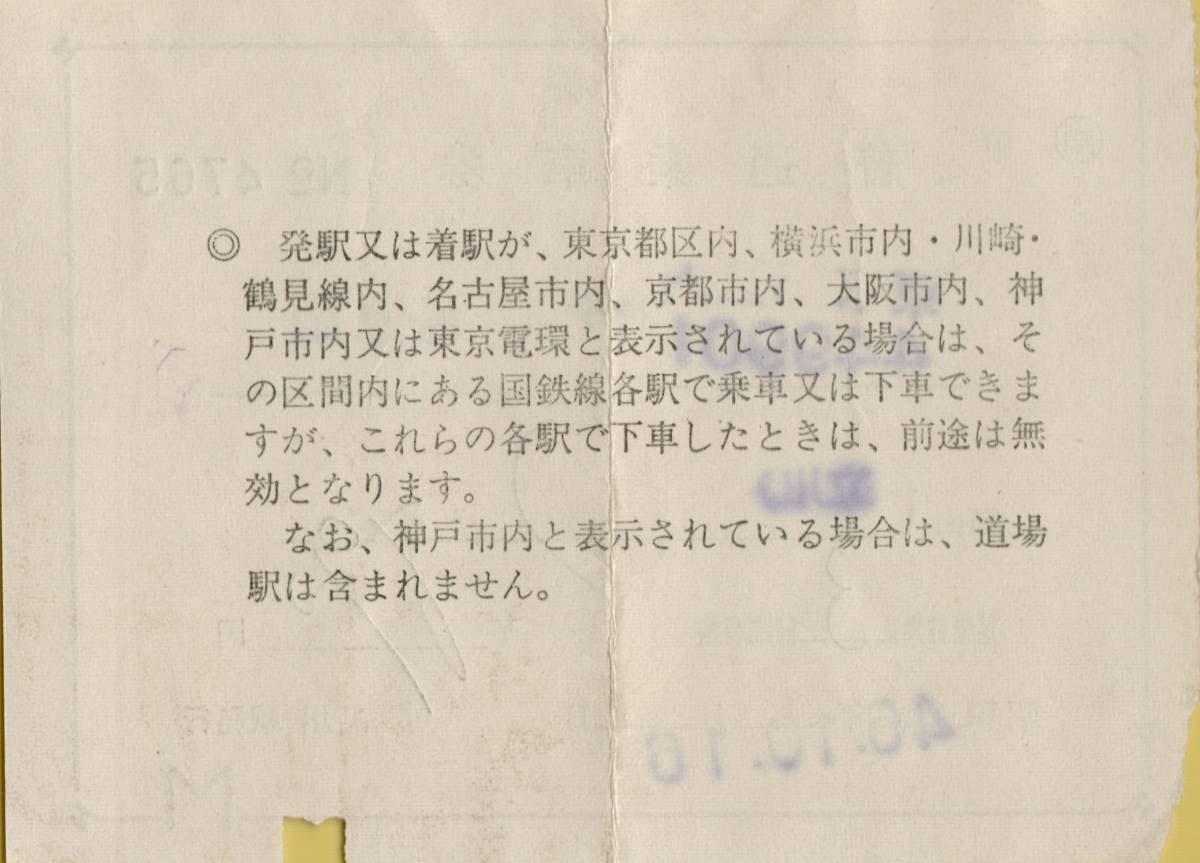 ◎ 発駅又は着駅が、東京都区内、横浜市内・川崎・
鶴見線内、名古屋市内、京都市内、大阪市内、神
戸市内又は東京電環と表示されている場合は、そ
の区間内にある国鉄線各駅で乗車又は下車できま
すが、これらの各駅で下車したときは、前途は無
効となります。
なお、神戸市内と表示されている場合は、道場
駅は含まれません。